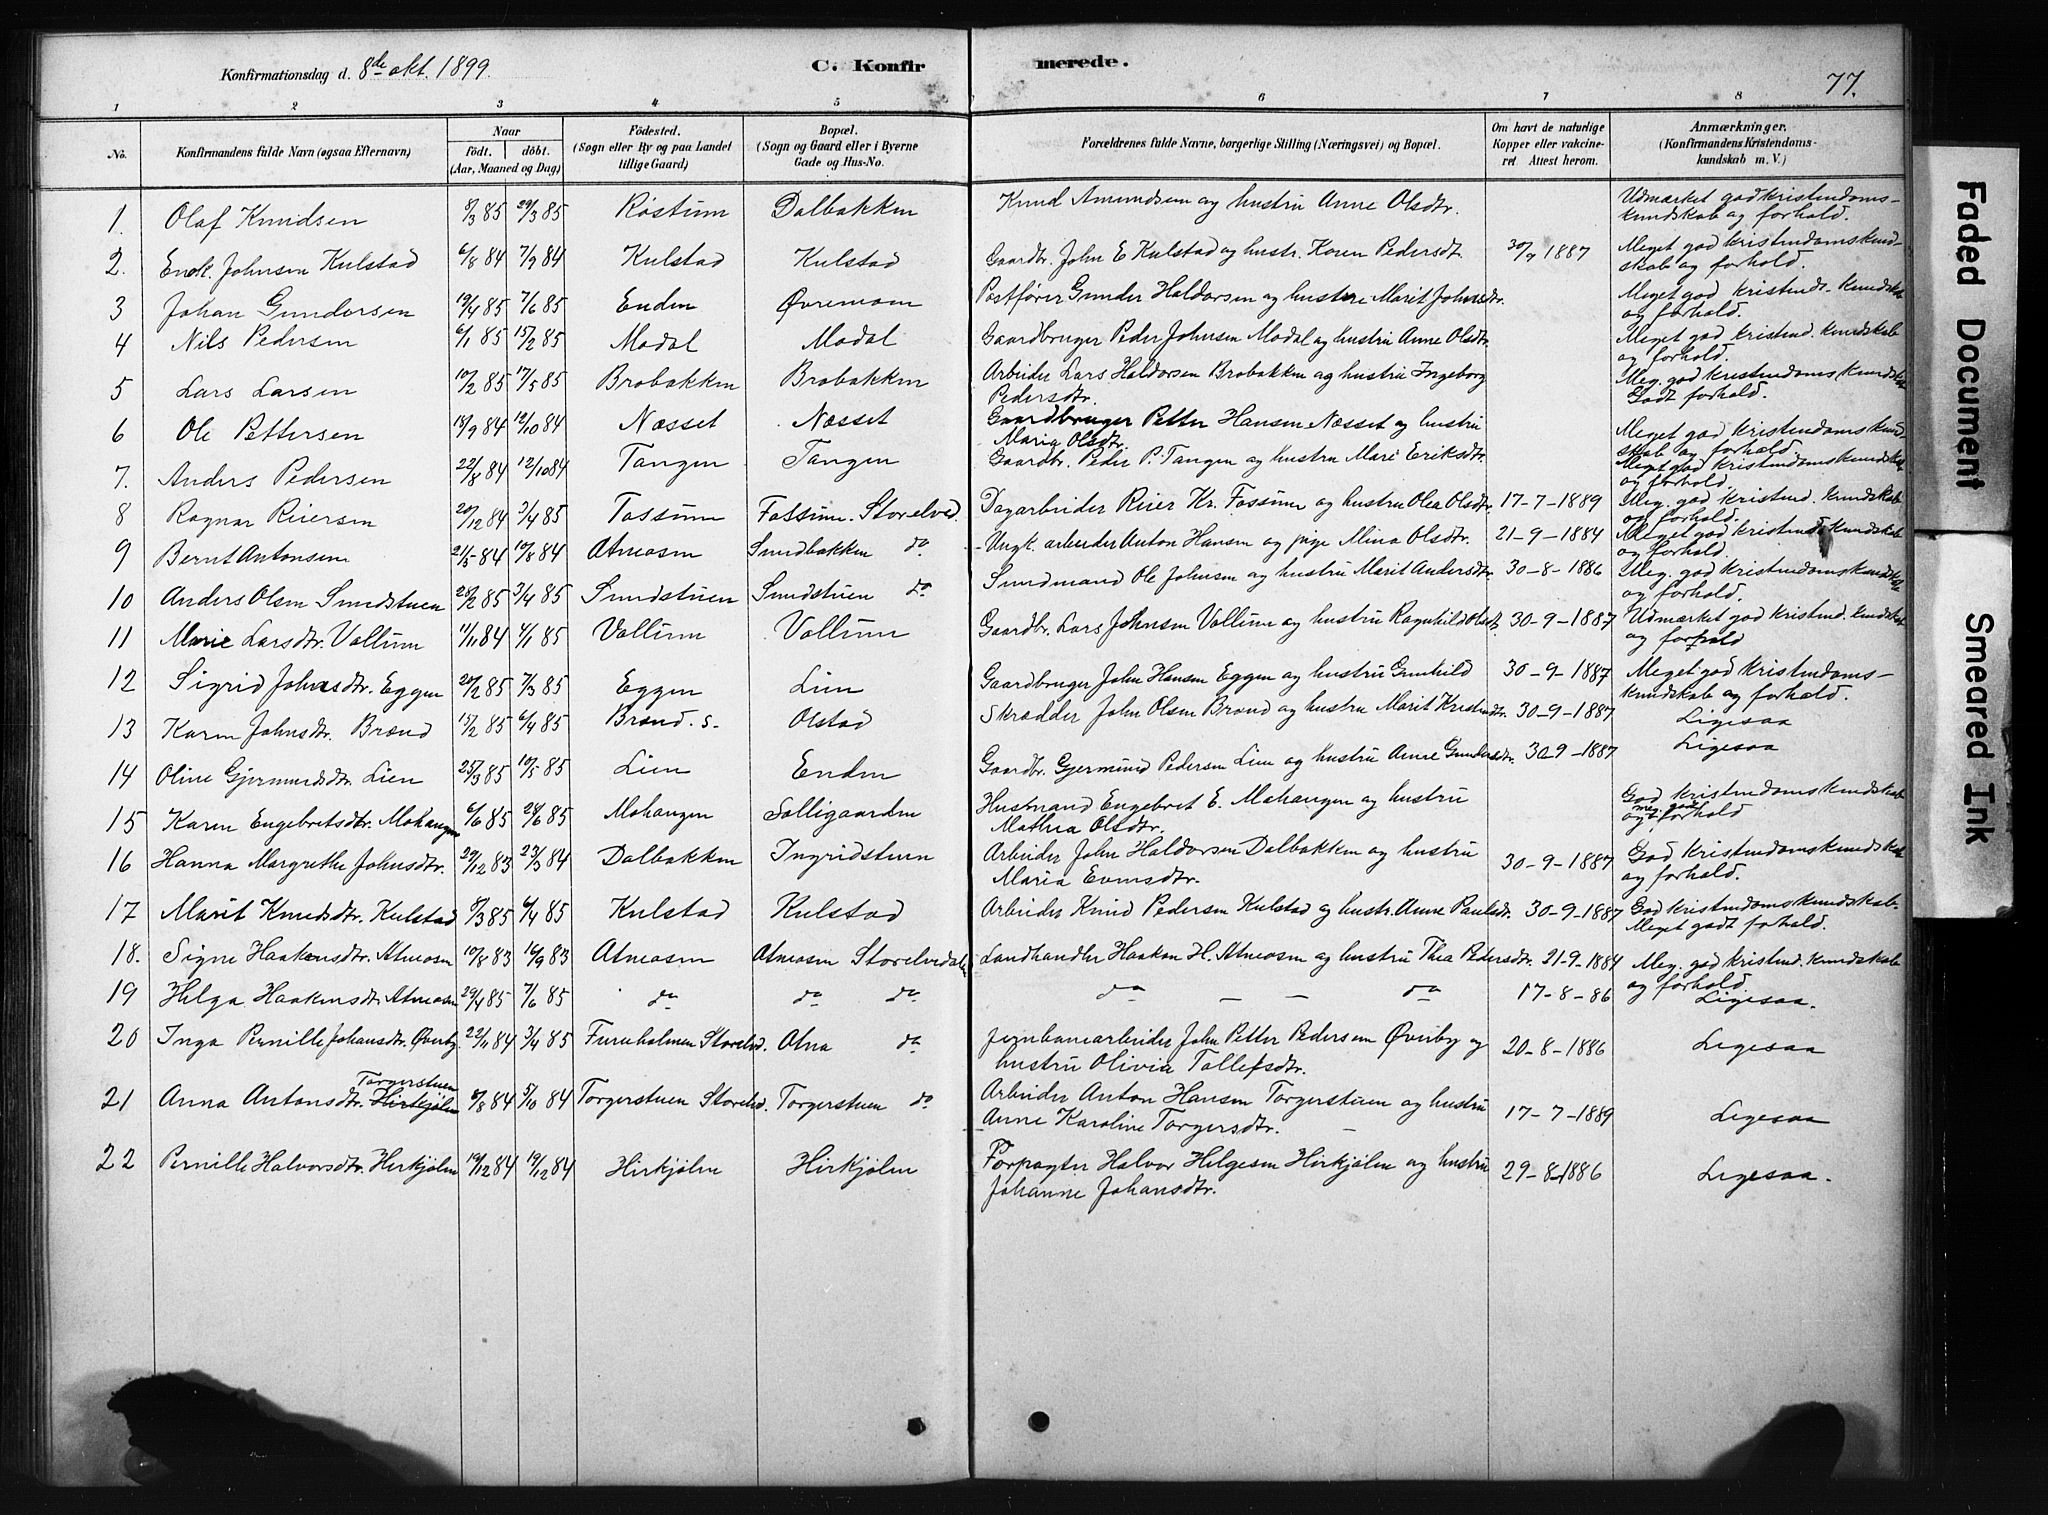 Konfirmationsdag d. 8de okt. 1899. C. Konfirmerede. 77.
1 2 3 4 5 6 7 8
No. Konfirmandens fulde Navn (ogsaa Efternavn) Naar Födt. döbt. (Aar, Maaned og Dag) Födested. (Sogn eller By og paa Landet tillige Gaard) Bopæl. (Sogn og Gaard eller i Byerne Gade og Hus-No. Forældrenes fulde Navne, borgerlige Stilling (Næringsvei) og Bopæl. Om havt de naturlige Kopper eller vakcineret Attest herom. Anmærkninger. (Konfirmandens Kristendomskundskab m. V.)
1. Olaf Knudsen 8/3 85 29/3 85 Röstum Dalbakken Knud Amundsen og hustru Anne Olsdtr. Udmærket god kristendoms-
kundskab og forhold.
2. Johnsen Kulstad 6/8 84 7/9 84 Kulstad Kulstad Gaardbr. John E Kulstad og hustr. Karen Pedersdt. 30/9 1887 Meget god kristendomskund-
skab og forhold.
3 Johan Gundersen 19/4 85 7/6 85 Enden Øvremoen Postfører Gunder Haldorsen og hustru Marit Johnsdtr. Meget god kristends. kundskab
og forhold.
4 Nils Pedersen 6/1 85 15/2 85 Modal Modal Gaardbruger Peder Johnsen Modal og hustru Anne Olsdtr. Meget god kristend. kundskab
og forhold.
5 Lars Larsen 10/2 85 17/5 85 Brobakken Brobakken Arbeider Lars Haldorsen Brobakken og hustru Ingeborg
Pedersdtr. Meg. god kristendoms kundskab
Godt forhold.
6 Ole Pettersen 84 12/10 84 Næsset Næsset Gaardbruger Petter Hansen Næsset og hustru
Maria Olsdtr. Meget god kristendomskund-
skab og forhold.
7. Anders Pedersen 22/8 84 12/10 84 Tangen Tangen Gaardbr. Peder P. Tangen og hustru Mari Eriksdtr. Meget god kristendomskundskab
og forhold.
8 Ragnar Reiersen 20/12 84 3/4 85 Fossum Fossum. Storelved. Dagarbeider Reier Kr. Fossum og hustru Olea Olsdtr. 17-7-1889 Meg. god kristend. kundskab
og forhold.
9 Bernt Antonsen 21/5 84 10/8 84 Atneosen Sundbakken do Ungk. arbeider Anton Hansen og pige Mina Olsdtr. 21-9-1884 Meget god kristends kundskab
og forhold.
10 Anders Olsen Sundstuen 20/2 85 3/4 85 Sundstuen Sundstuen do. Sundmand Ole Johnsen og hustru Marit Andersdtr. 30-8-1886 Meg. god kristendomskundskab
og forhold.
11 Marie Larsdtr. Vollum 11/11 84 4/1 85 Vollum Vollum Gaardbr. Lars Johnsen Vollum og hustru Ragnhild Olsdt. 30-9-1887 Udmærket god kristend. kundskab
og forhold
12 Sigrid Johnsdtr. Eggen 20/2 85 7/3 85 Eggen Lien Gaardbruger John Hansen Eggen og hustru Gunhild 30-9-1887 Meget god kristendoms-
kundskab og forhold.
13 Karen Johnsdtr. Brænd 15/2 85 6/4 85 Brænd. s. Olstad Skrædder John Olsen Brænd og hustru Marit Kristendtr. 30-9-1887 Ligesaa
14 Oline Gjermundsdtr. Lien 25/3 85 10/5 85 Lien Enden Gaardbr. Gjermund Pedersen Lien og hustru Anne Gundersdtr. 30-9-1887 Ligesaa
15 Karen Engebretsdtr. Mohaugen 6/6 85 28/6 85 Mohaugen Solligaarden Husmand Engebret E. Mohaugen og hustru
Mathea Olsdtr. God kristendomskundskab
og meg. godt forhold
16 Hanna Margrethe Johnsdtr. 29/12 83 23/3 84 Dalbakken Ingridstuen Arbeider John Haldorsen Dalbakken og hustru
Maria Evensdtr. 30-9-1887 God kristendomskundskab
og forhold.
17 Marit Knudsdtr. Kulstad 8/3 85 6/4 85 Kulstad Kulstad Arbeider Knud Pedersen Kulstad og hustr. Anne Paulsdtr. 30-9-1887 God kristendomskundskab.
Meget godt forhold.
18. Signe Haakensdtr. Atneosen 10/8 83 16/9 83 Atneosen Atneosen Storelvedalen Landhandler Haaken H. Atneosen og hustru Thea Pedersdtr. 21-9-1884 Meg. god kristend. kundskab
og forhold.
19 Helga Haakensdtr. Atneosen 29/4 85 7/6 85 do do do do — — do 17-8-86 Ligesaa.
20 Inga Pernille Johansdtr. Øverby. 22/11 84 3/4 85 Fureholmen Storelvd. Atna do Jernbanearbeider John Petter Pedersen Øverby og
hustru Olivia Tollefsdtr. 20-8-1886 Ligesaa
21 Anna Antonsdtr. Torgerstuen Hirkjølen 8/8 84 5/10 84 Torgerstuen Storelvd. Torgerstuen do. Arbeider Anton Hansen Torgerstuen og hustru
Anne Karoline Torgersdtr. — 17-7-1889 Ligesaa
22 Pernille Halvorsdtr. Hirkjølen 84 19/12 84 Hirkjølen Hirkjølen Forpagter Halvor Helgesen Hirkjølen og hustru
Johanne Johansdtr. 29-8-1886 Ligesaa.
Faded Document
Smeared Ink